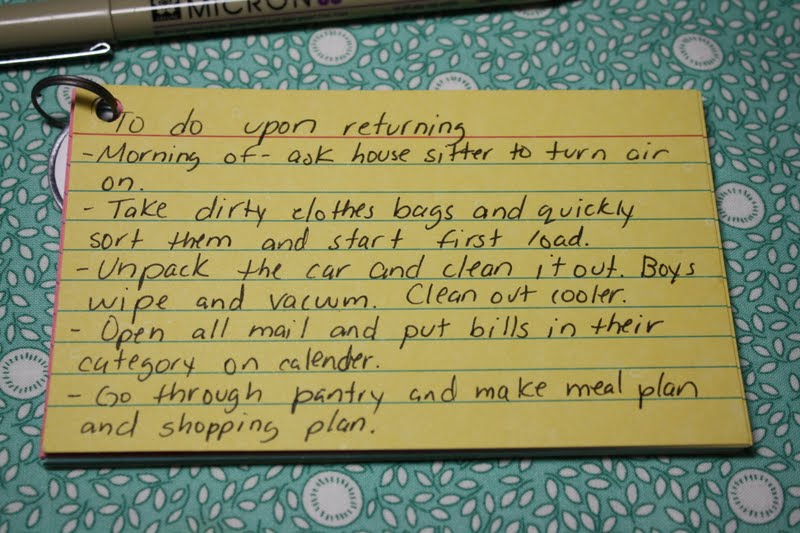 MICRON
To do upon returning
- Morning of - ask house sitter to turn air
on.
- Take dirty clothes bags and quickly
sort them and start first load.
- Unpack the car and clean it out. Boys
wipe and vacuum. Clean out cooler.
- Open all mail and put bills in their
category on calender.
- Go through pantry and make meal plan
and shopping plan.